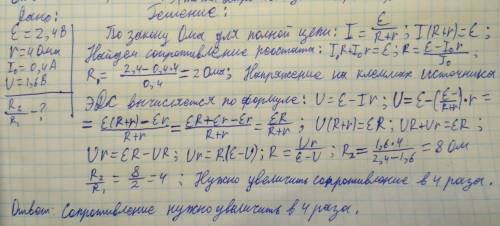 Дано:
Решение:
Ɛ = 2,4В
r = 4 Ом
I₀ = 0,4А
U = 1,6В
R₂/R₁ - ?
По закону Ома для полной цепи: I = Ɛ/(R+r); I(R+r) = Ɛ;
Найдем сопротивление реостата: I₀R+I₀r = Ɛ; R = (Ɛ-I₀r)/I₀;
R₁ = (2,4-0,4·4)/0,4 = 2 Ом; Напряжение на клеммах источника
ЭДС вычисляется по формуле: U = Ɛ-Ir; U = Ɛ-(Ɛ/(R+r))·r =
= (Ɛ(R+r)-Ɛr)/(R+r) = (ƐR+Ɛr-Ɛr)/(R+r) = ƐR/(R+r); U(R+r) = ƐR; UR+Ur = ƐR;
Ur = ƐR-UR; Ur = R(Ɛ-U); R = Ur/(Ɛ-U); R₂ = (1,6·4)/(2,4-1,6) = 8 Ом
R₂/R₁ = 8/2 = 4; Нужно увеличить сопротивление в 4 раза.
Ответ: Сопротивление нужно увеличить в 4 раза.